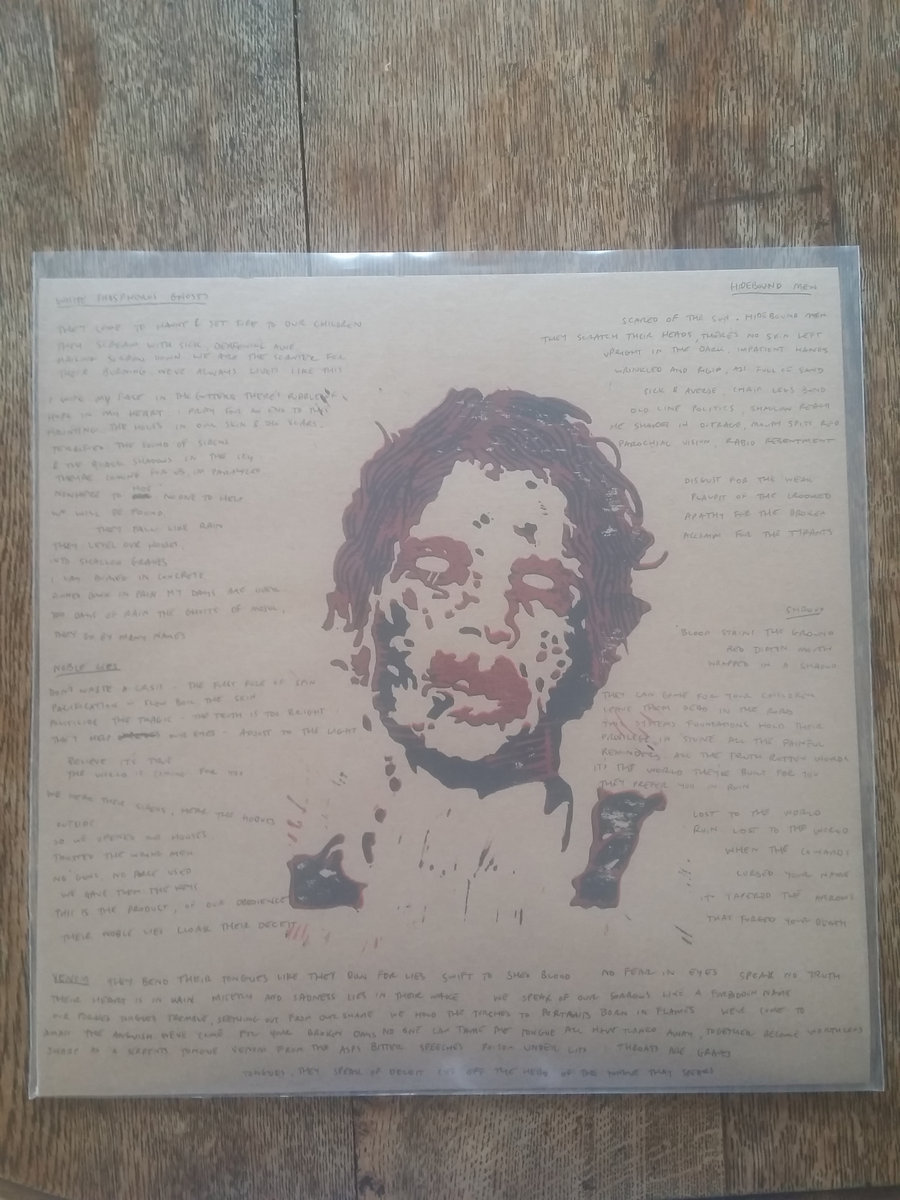 WHITE PHOSPHORUS GHOSTS
THEY COME TO HAUNT & SET FIRE TO OUR CHILDREN
THEY SCREAM WITH SICK,
DOWN WE ARE THE FOR
THEIR BURNING. WE'VE ALWAYS LIVED LIKE THIS
I HIDE MY FACE IN THE GUTTING THERE'S
HOPE IN MY HEART. I PRAY FOR AN END TO THE
HAUNTING. THE HOLES IN OUR SKIN & SCARS,
TERRIFIED THE SOUND OF SIRENS
& THE BLACK SHADOWS IN THE SKY
THEY'RE COMING FOR US, I'M PARALYZED
NOWHERE TO HIDE NO ONE TO HELP
WE WILL BE FOUND
THEY FALL LIKE RAIN
THEY LEVEL OUR HOUSES,
INTO SHALLOW GRAVES
I WAS BURIED IN CONCRETE
DOWN IN PAIN MY DAYS ARE OVER
DAYS OF RAIN THE GHOSTS OF MOSUL,
THEY GO BY MANY NAMES
NOBLE LIES
DON'T WASTE A CRISIS - THE FIRST RULE OF SPIN
PACIFICATION - SLOW BOIL THE SKIN
THE TRAGIC - THE TRUTH IS TOO BRIGHT
THEY HELP OUR EYES - ADJUST TO THE LIGHT
BELIEVE IT'S TRUE
THE WORLD IS COMING FOR YOU
WE HEAR THEIR SIRENS, HEAR THE HORDES
OUTSIDE
SO WE OPENED OUR HOUSES
TRUSTED THE WRONG MEN
NO GUNS, NO FORCE USED
WE GAVE THEM THE KEYS
THIS IS THE PRODUCT, OF OUR OBEDIENCE
THEIR NOBLE LIES CLOAK THEIR DECEIT
HIDEBOUND MEN
SCARED OF THE SUN, HIDEBOUND MEN
THEY SCRATCH THEIR HEADS, THERE'S NO SKIN LEFT
UPRIGHT IN THE DARK, IMPATIENT HANDS
WRINKLED AND RIGID, ALL FULL OF SAND
SICK & AVERSE, CHAIR LEGS BEND
OLD LINE POLITICS, SHALLOW
HE SHAKES IN OUTRAGE, MOUTH SPITS RED
PAROCHIAL VISION, RABID RESENTMENT
DISGUST FOR THE WEAK
PLAUDIT OF THE CROOKED
APATHY FOR THE BROKEN
ACCLAIM FOR THE TYRANTS
SHROUD
BLOOD STAINS THE GROUND
RED DIRTY MOUTH
WRAPPED IN A SHROUD
THEY CAN COME FOR YOUR CHILDREN
LEAVE THEM DEAD IN THE ROAD
THE SYSTEMS FOUNDATIONS HOLD THEIR
PRIVILEGE IN STONE ALL THE PAINFUL
REMINDERS. ALL THE TRUTH ROTTEN WORDS
IT'S THE WORLD THEY'VE BUILT FOR YOU
THEY PREFER YOU IN RUIN
LOST TO THE WORLD
RUIN LOST TO THE WORLD
WHEN THE COWARDS
CURSED YOUR NAME
IT TAPERED THE ARROWS
THAT FORGED YOUR DEATH
VENOM THEY BEND THEIR TONGUES LIKE THEY RUN FOR LIES SWIFT TO SHED BLOOD NO FEAR IN EYES SPEAK NO TRUTH
THEIR HEART IS IN RUIN MISERY AND SADNESS LIES IN THEIR WAKE WE SPEAK OF OUR SORROWS LIKE A FORBIDDEN NAME
OUR FORKED TONGUES TREMBLE, SEETHING OUT FROM OUR SHAME WE HOLD THE TORCHES TO PORTRAITS BORN IN FLAMES WE'VE COME TO
THE ANGUISH WE'VE COME FOR YOUR BROKEN NO ONE CAN TAME THE TONGUE ALL HAVE TURNED AWAY, TOGETHER BECOME WORTHLESS
SHARP AS A SERPENTS TONGUE VENOM FROM THE ASPS BITTER SPEECHES POISON UNDER LIPS THROATS ARE GRAVES
TONGUES, THEY SPEAK OF DECEIT CUT OFF THE HEAD OF THE TONGUE THAT SPEAKS